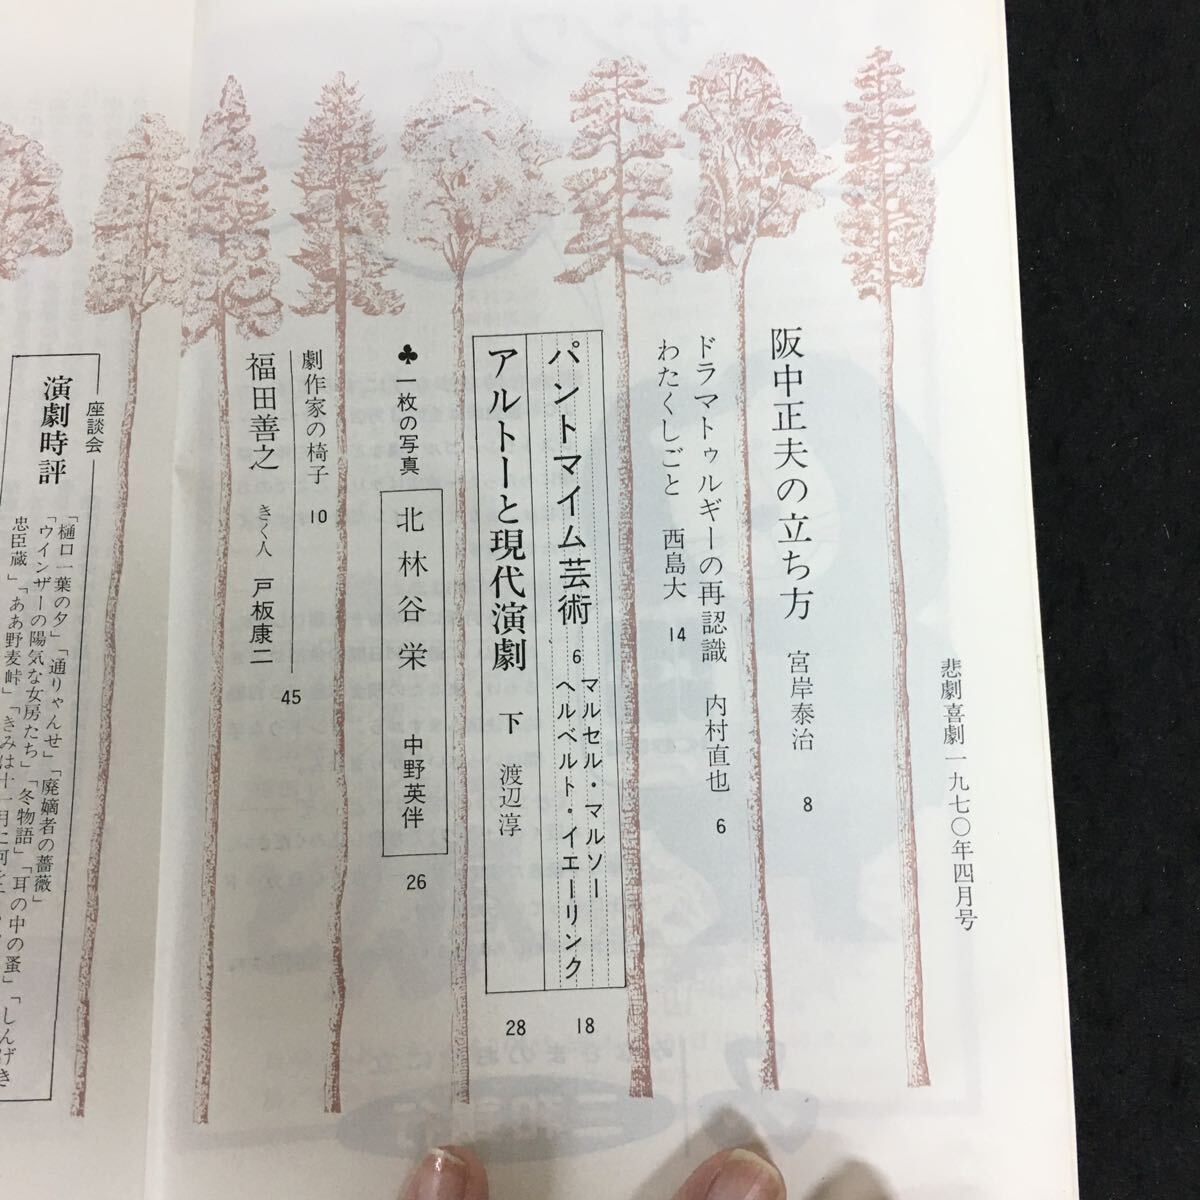 悲劇喜劇一九七〇年四月号
阪中正夫の立ち方 宮岸泰治 8
ドラマトゥルギーの再認識 内村直也 6
わたくしごと 西島大 14
パントマイム芸術 6 マルセル・マルソー
ヘルベルト・イエーリンク 18
アルトーと現代演劇 下 渡辺淳 28
♣一枚の写真 北林谷栄 中野英伴 26
劇作家の椅子 10
福田善之 きく人 戸板康二 45
座談会
演劇時評
「樋口一葉の夕」「通りゃんせ」「廃嫡者の薔薇」
「ウインザーの陽気な女房たち」「冬物語」「耳の中の蚤」「しんげき
忠臣蔵」「ああ野麦峠」「きみは十一月に何を